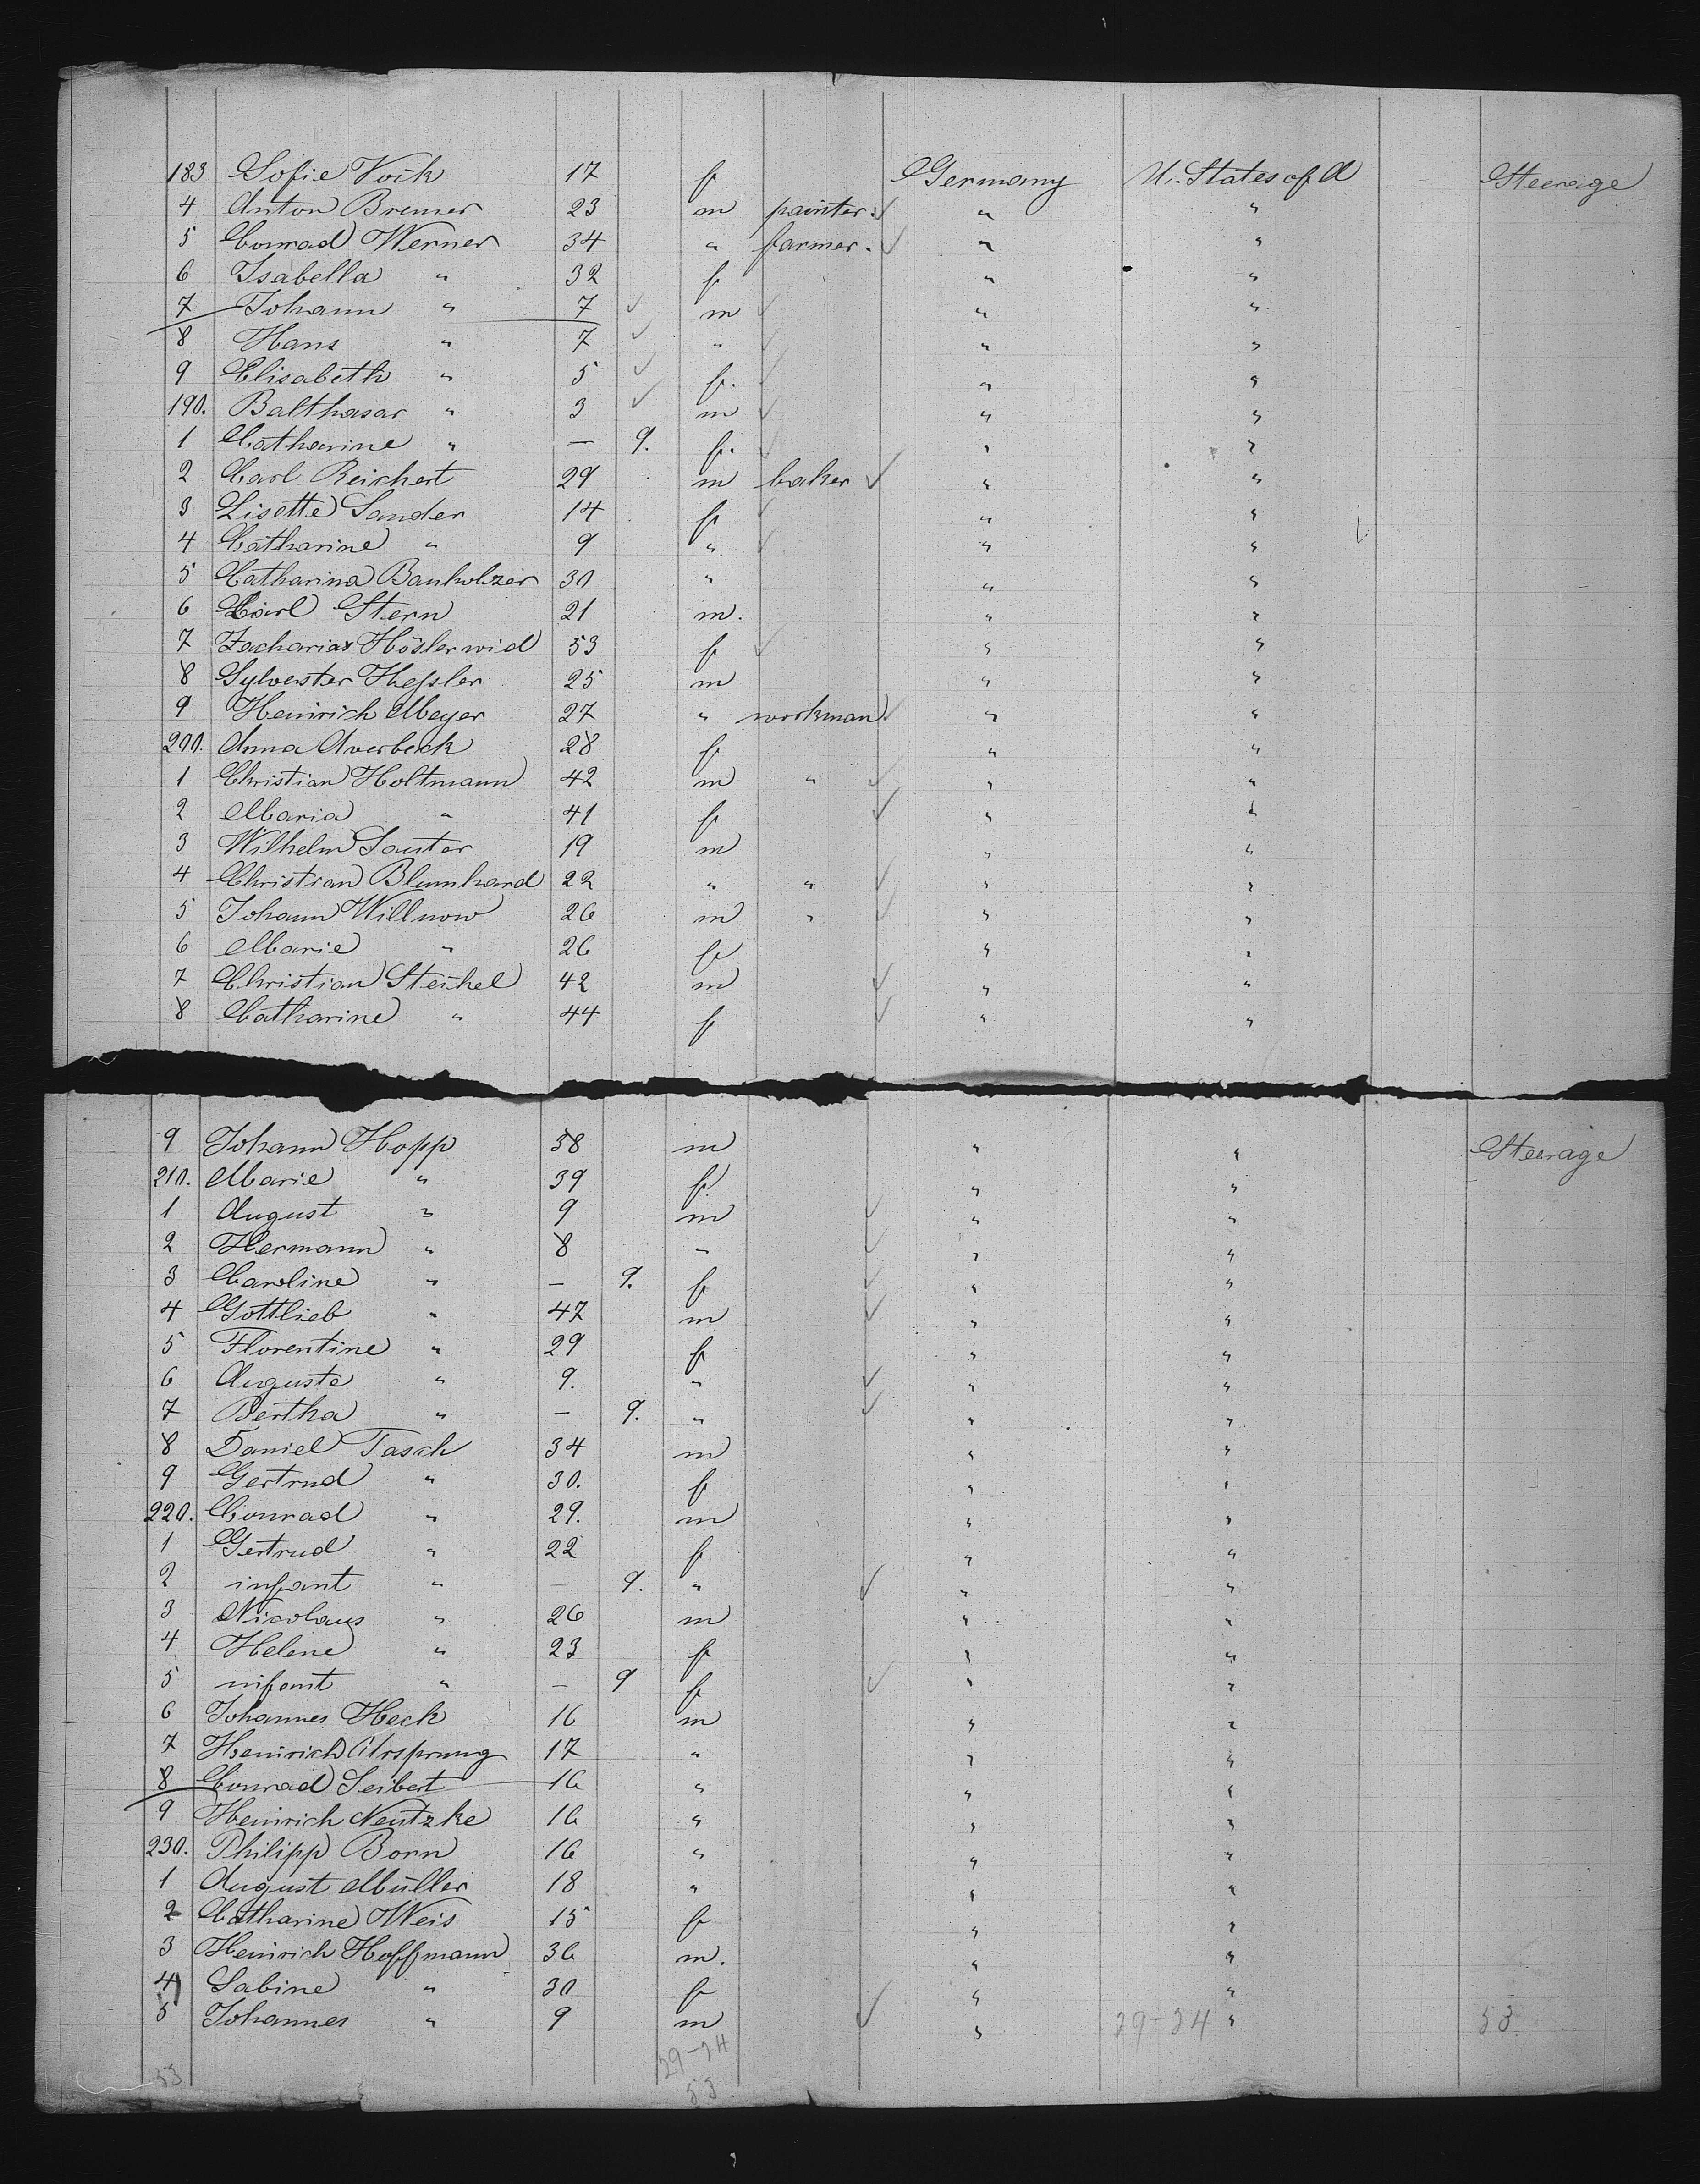 183 Sofie Voik 17 f Germany U. States of A Steerage
4 Anton Bremer 23 m painter. " "
5 Conrad Werner 34 " farmer. " "
6 Isabella " 32 f " "
7 Johann " 7 m " "
8 Hans " 7 " " "
9 Elisabeth " 5 f. " "
190. Balthasar " 3 m " "
1 Catharine " — 9. f. " "
2 Carl Reichert 29 m baker " "
3 Lisette Sander 14 f " "
4 Catharine " 9 " " "
5 Catharina Banholzer 30 " " "
6 Carl Stern 21 m. " "
7 Zacharias Hösler wid 53 f " "
8 Sylvester Heßler 25 m " "
9 Heinrich Meyer 27 " workman " "
200. Anna Averbeck 28 f " "
1 Christian Holtmann 42 m " " "
2 Maria " 41 f " "
3 Wilhelm Sauter 19 m " "
4 Christian Blumhard 22 " " " "
5 Johann Willnow 26 m " " "
6 Marie " 26 f " "
7 Christian Steikel 42 m " "
8 Catharine " 44 f " "
9 Johann Hopp 38 m " " Steerage
210. Marie " 39 f " "
1 August " 9 m " "
2 Hermann " 8 " " "
3 Caroline " — 9. f " "
4 Gottlieb " 47 m " "
5 Florentine " 29 f " "
6 Auguste " 9. " " "
7 Bertha " — 9. " " "
8 Daniel Tasch 34 m " "
9 Gertrud " 30. f " "
220. Conrad " 29. m " "
1 Gertrud " 22 f " "
2 infant " — 9. " " "
3 Nicolaus " 26 m " "
4 Helene " 23 f " "
5 infant " — 9 f " "
6 Johannes Heck 16 m " "
7 Heinrich Ursprung 17 " " "
8 Conrad Seibert 16 " " "
9 Heinrich Neutzke 16 " " "
230. Philipp Born 16 " " "
1 August Müller 18 " " "
2 Catharine Weis 15 f " "
3 Heinrich Hoffmann 36 m. " "
4 Sabine " 30 f " "
5 Johannes " 9 m " 29-24 " 53
53 29-24
53.